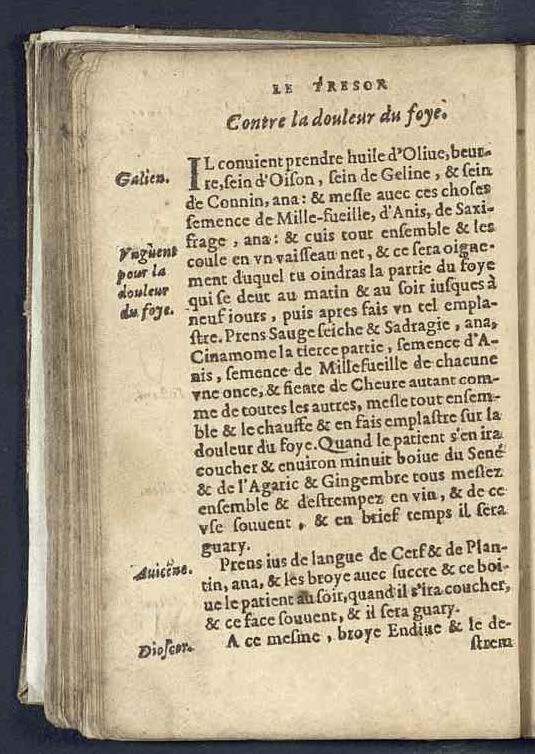 LE TRESOR
Contre la douleur du foye.
Galien.
IL conuient prendre huile d'Oliue, beur-
re, sein d'Oison, sein de Geline, & sein
de Connin, ana: & mesle auec ces choses
semence de Mille-fueille, d'Anis, de Saxi-
frage, ana: & cuis tout ensemble & les
Vnguent
pour la
douleur
du foye.
coule en vn vaisseau net, & ce sera oigne-
ment duquel tu oindras la partie du foye
qui se deut au matin & au soir iusques à
neuf iours, puis apres fais vn tel empla-
stre. Prens Sauge seiche & Sadragie, ana,
Cinamome la tierce partie, semence d'A-
nis, semence de Millefueille de chacune
vne once, & fiente de Cheure autant com-
me de toutes les autres, mesle tout ensem-
ble & le chauffe & en fais emplastre sur la
douleur du foye. Quand le patient s'en ira
coucher & enuiron minuit boiue du Sené
& de l'Agaric & Gingembre tous meslez
ensemble & destrempez en vin, & de ce
vse souuent, & en brief temps il sera
guary.
Auicene.
Prens ius de langue de Cerf & de Plan-
tin, ana, & les broye auec succre & ce boi-
ue le patient au soir, quand il s'ira coucher,
& ce face souuent, & il sera guary.
Dioscor.
A ce mesme, broye Endiue & le de-
strem